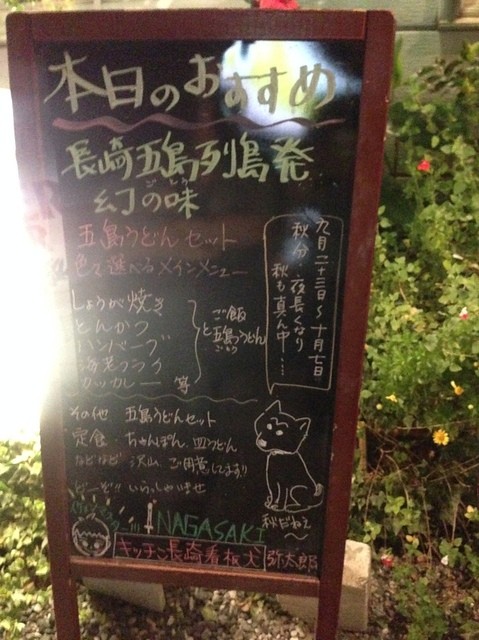 本日のおすすめ
長崎五島列島発
幻の味
五島うどんセット
色々選べるメインメニュー
しょうが焼き
とんかつ
ハンバーグ
海老フライ
カツカレー 等
ご飯
と五島うどん
ごとう
九月二十三日〜十月七日
秋分 夜長くなり
秋も真ん中…
その他 五島うどんセット
定食・ちゃんぽん、皿うどん
などなど 沢山、ご用意してます!!
どーぞ!! いらっしゃいませ
秋だねぇ〜
NAGASAKI
キッチン長崎看板犬 弥太郎